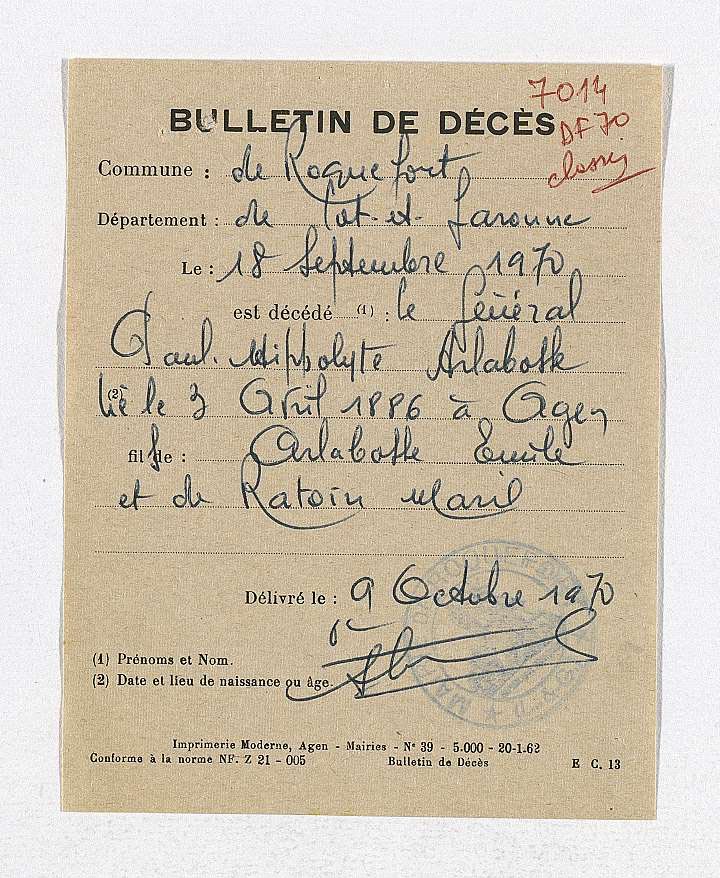 7014
BULLETIN DE DÉCÈS DF70
classé
Commune : de Roquefort
Département : de Lot-et-Garonne
Le : 18 Septembre 1970
est décédé (1) : le Général
Paul Hippolyte Arlabosse
(2) Né le 3 Avril 1886 à Agen
fils de : Arlabosse Emile
et de Ratoin Marie
Délivré le : 9 Octobre 1970
(1) Prénoms et Nom.
(2) Date et lieu de naissance ou âge.
Imprimerie Moderne, Agen - Mairies - N° 39 - 5.000 - 20-1-62
Conforme à la norme NF. Z 21 - 005 Bulletin de Décès E C. 13